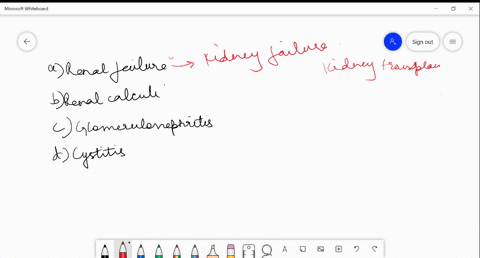 Microsoft Whiteboard
Sign out
a) Renal failure → Kidney failure
Kidney transplan
b) Renal calculi
c) Glomerulonephrites
d) Cystitis
A